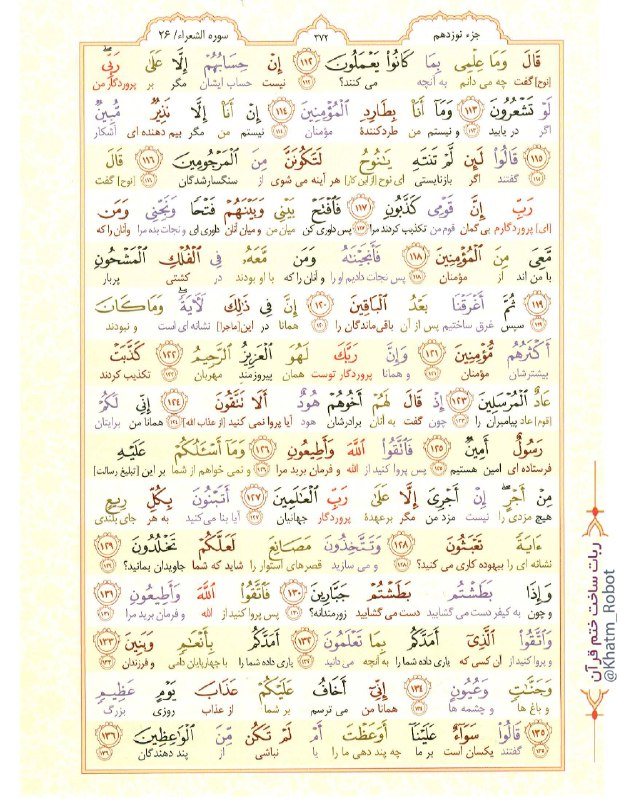 جزء نوزدهم ۳۷۲ سوره الشعراء/ ۲۶
قَالَ وَمَا عِلْمِی بِمَا كَانُوا۟ یَعْمَلُونَ ۱۱۲ إِنْ حِسَابُهُمْ إِلَّا عَلَىٰ رَبِّی
[نوح] گفت چه می دانم به آنچه می کنند؟ ۱۱۲ نیست حساب ایشان مگر بر پروردگار من
لَوْ تَشْعُرُونَ ۱۱۳ وَمَآ أَنَا۠ بِطَارِدِ ٱلْمُؤْمِنِینَ ۱۱۴ إِنْ أَنَا۠ إِلَّا نَذِیرٌ مُّبِینٌ
اگر در یابید ۱۱۳ و نیستم من طردکنندهٔ مؤمنان ۱۱۴ نیستم من مگر بیم دهنده ای آشکار
۱۱۵ قَالُوا۟ لَئِن لَّمْ تَنتَهِ یَـٰنُوحُ لَتَكُونَنَّ مِنَ ٱلْمَرْجُومِینَ ۱۱۶ قَالَ
۱۱۵ گفتند اگر بازنایستی ای نوح [از این کار] هر آینه می شوی از سنگسارشدگان ۱۱۶ [نوح] گفت
رَبِّ إِنَّ قَوْمِی كَذَّبُونِ ۱۱۷ فَٱفْتَحْ بَیْنِی وَبَیْنَهُمْ فَتْحًا وَنَجِّنِی وَمَن
[ای] پروردگارم بی گمان قوم من تکذیب کردند مرا ۱۱۷ پس داوری کن میان من و میان آنان داوری ای و نجات بده مرا و آنان را که
مَّعِیَ مِنَ ٱلْمُؤْمِنِینَ ۱۱۸ فَأَنجَیْنَـٰهُ وَمَن مَّعَهُۥ فِی ٱلْفُلْكِ ٱلْمَشْحُونِ
با من اند از مؤمنان ۱۱۸ پس نجات دادیم او را و آنان را که با او بودند در کشتی پربار
۱۱۹ ثُمَّ أَغْرَقْنَا بَعْدُ ٱلْبَاقِینَ ۱۲۰ إِنَّ فِی ذَٰلِكَ لَـَٔایَةً وَمَا كَانَ
۱۱۹ سپس غرق ساختیم پس از آن باقی ماندگان را ۱۲۰ همانا در این [ماجرا] نشانه ای است و نبودند
أَكْثَرُهُم مُّؤْمِنِینَ ۱۲۱ وَإِنَّ رَبَّكَ لَهُوَ ٱلْعَزِیزُ ٱلرَّحِیمُ ۱۲۲ كَذَّبَتْ
بیشترشان مؤمنان ۱۲۱ و همانا پروردگار توست همان پیروزمند مهربان ۱۲۲ تکذیب کردند
عَادٌ ٱلْمُرْسَلِینَ ۱۲۳ إِذْ قَالَ لَهُمْ أَخُوهُمْ هُودٌ أَلَا تَتَّقُونَ ۱۲۴ إِنِّی لَكُمْ
[قوم] عاد پیامبران را ۱۲۳ چون گفت به آنان برادرشان هود آیا پروا نمی کنید [از عذاب الله] ۱۲۴ همانا من برایتان
رَسُولٌ أَمِینٌ ۱۲۵ فَٱتَّقُوا۟ ٱللَّهَ وَأَطِیعُونِ ۱۲۶ وَمَآ أَسْـَٔلُكُمْ عَلَیْهِ
فرستاده ای امین هستیم ۱۲۵ پس پروا کنید از الله و فرمان برید مرا ۱۲۶ و نمی خواهم از شما بر این [تبلیغ رسالت]
مِنْ أَجْرٍ إِنْ أَجْرِیَ إِلَّا عَلَىٰ رَبِّ ٱلْعَـٰلَمِینَ ۱۲۷ أَتَبْنُونَ بِكُلِّ رِیعٍ
هیچ مزدی را نیست مزد من مگر برعهدهٔ پروردگار جهانیان ۱۲۷ آیا بنا می کنید به هر جای بلندی
ءَایَةً تَعْبَثُونَ ۱۲۸ وَتَتَّخِذُونَ مَصَانِعَ لَعَلَّكُمْ تَخْلُدُونَ ۱۲۹
نشانه ای را بیهوده کاری می کنید؟ ۱۲۸ و می سازید قصرهای استوار را شاید که شما جاویدان بمانید؟ ۱۲۹
وَإِذَا بَطَشْتُم بَطَشْتُمْ جَبَّارِینَ ۱۳۰ فَٱتَّقُوا۟ ٱللَّهَ وَأَطِیعُونِ ۱۳۱
و چون به کیفر دست می گشایید دست می گشایید زورمندانه؟ ۱۳۰ پس پروا کنید از الله و فرمان برید مرا ۱۳۱
وَٱتَّقُوا۟ ٱلَّذِیٓ أَمَدَّكُم بِمَا تَعْلَمُونَ ۱۳۲ أَمَدَّكُم بِأَنْعَـٰمٍ وَبَنِینَ ۱۳۳
و پروا کنید از آن کسی که یاری داده شما را به آنچه می دانید ۱۳۲ یاری داده شما را با چهارپایان دامی و فرزندان ۱۳۳
وَجَنَّـٰتٍ وَعُیُونٍ ۱۳۴ إِنِّیٓ أَخَافُ عَلَیْكُمْ عَذَابَ یَوْمٍ عَظِیمٍ
و باغ ها و چشمه ها ۱۳۴ همانا من می ترسم بر شما از عذاب روزی بزرگ
۱۳۵ قَالُوا۟ سَوَآءٌ عَلَیْنَآ أَوَعَظْتَ أَمْ لَمْ تَكُن مِّنَ ٱلْوَٰعِظِینَ ۱۳۶
۱۳۵ گفتند یکسان است بر ما چه پند دهی ما را یا نباشی از پند دهندگان ۱۳۶
ربات ساخت ختم قرآن
@Khatm_Robot